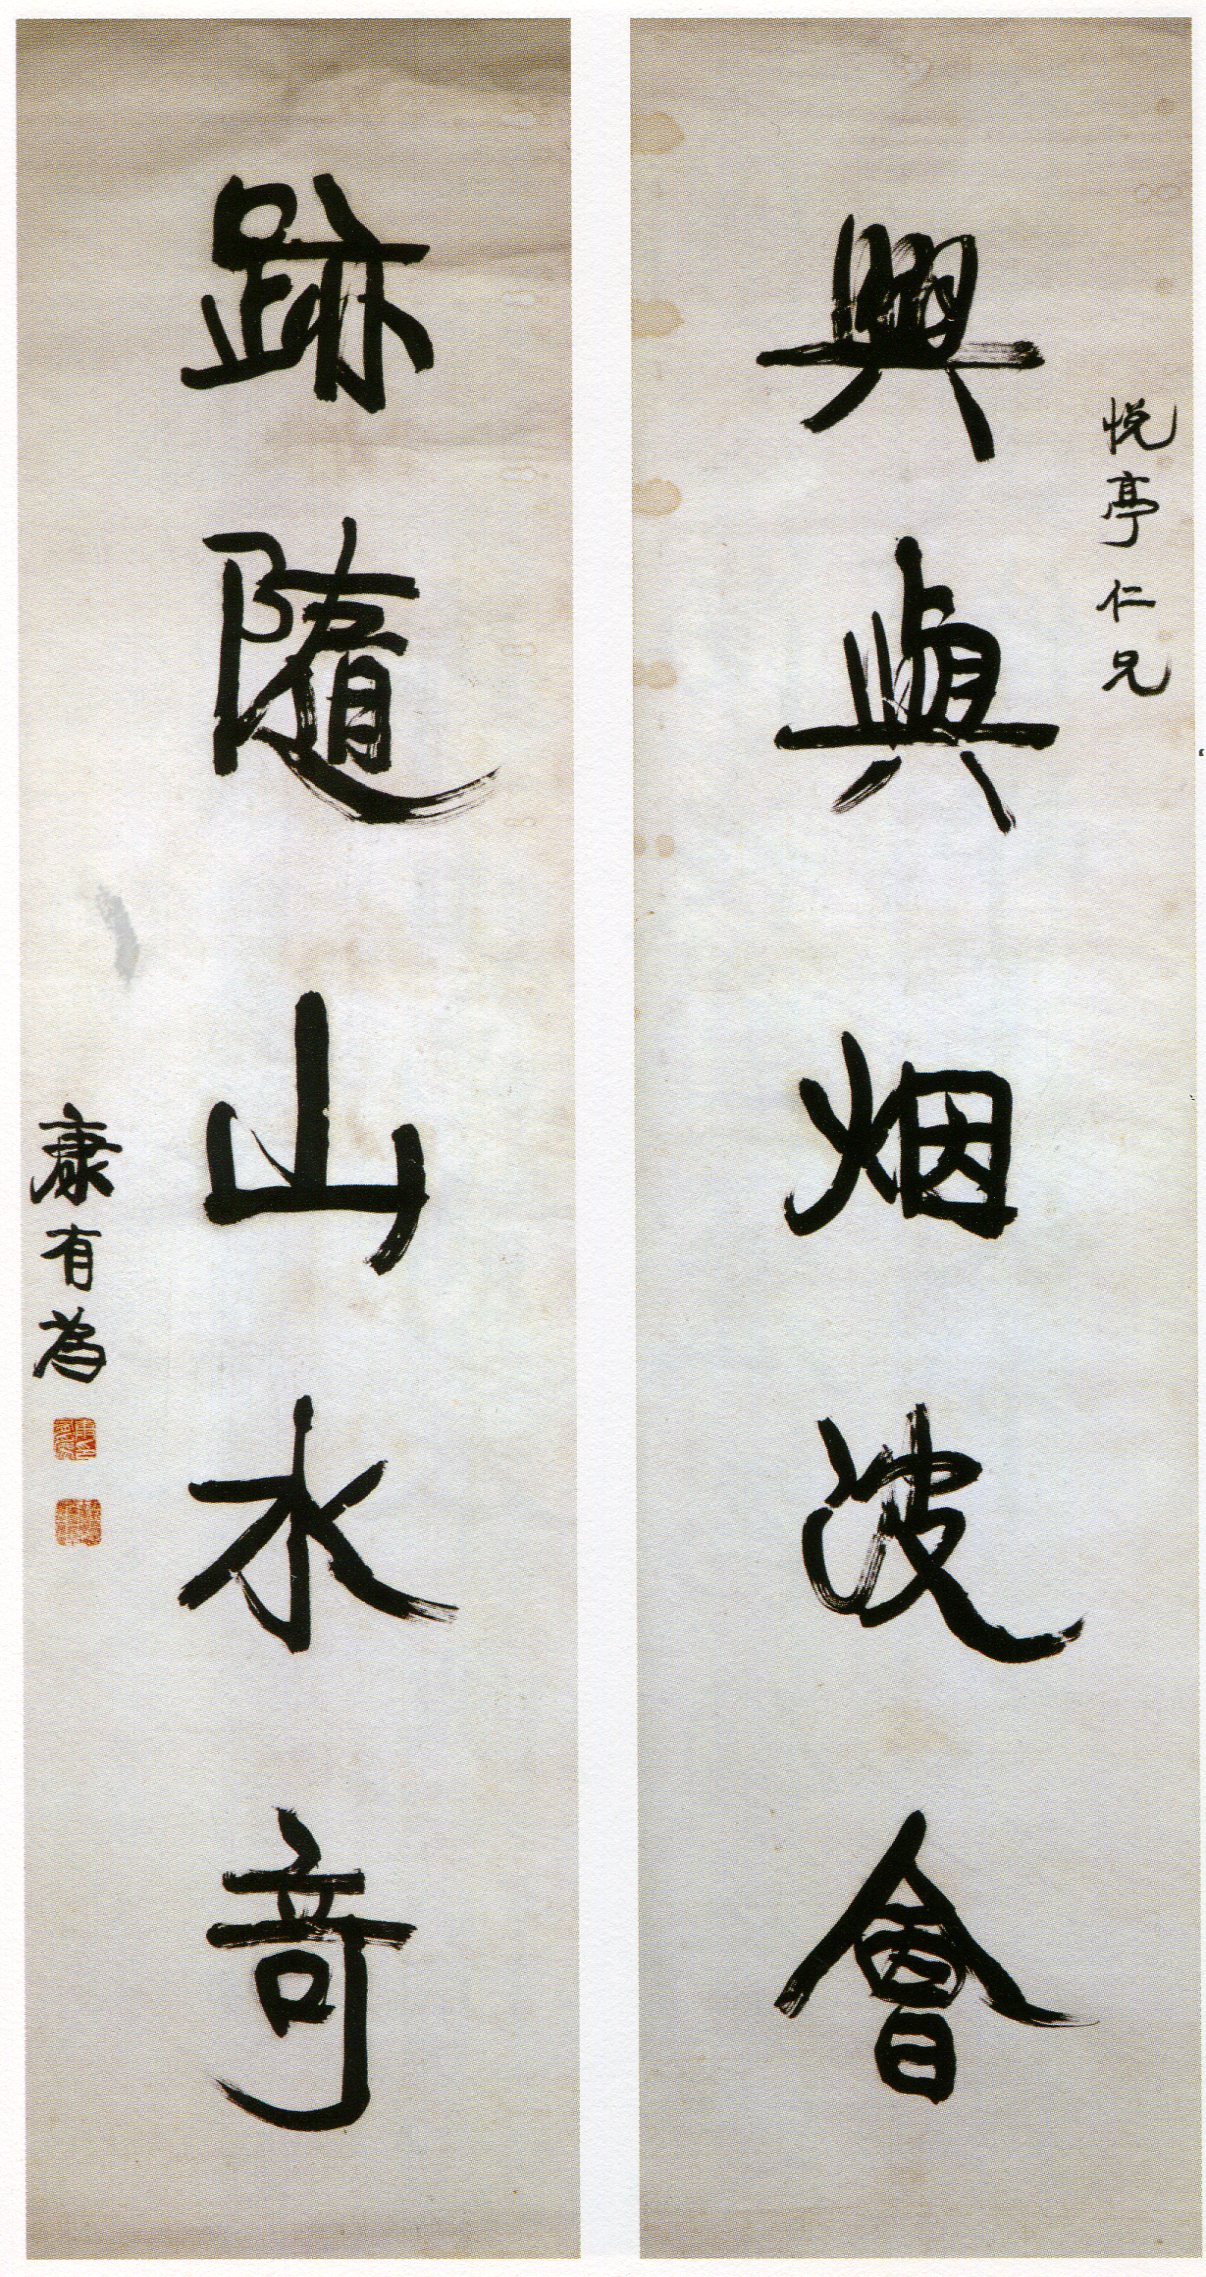 悦亭仁兄
興與烟波會
跡隨山水奇
康有為